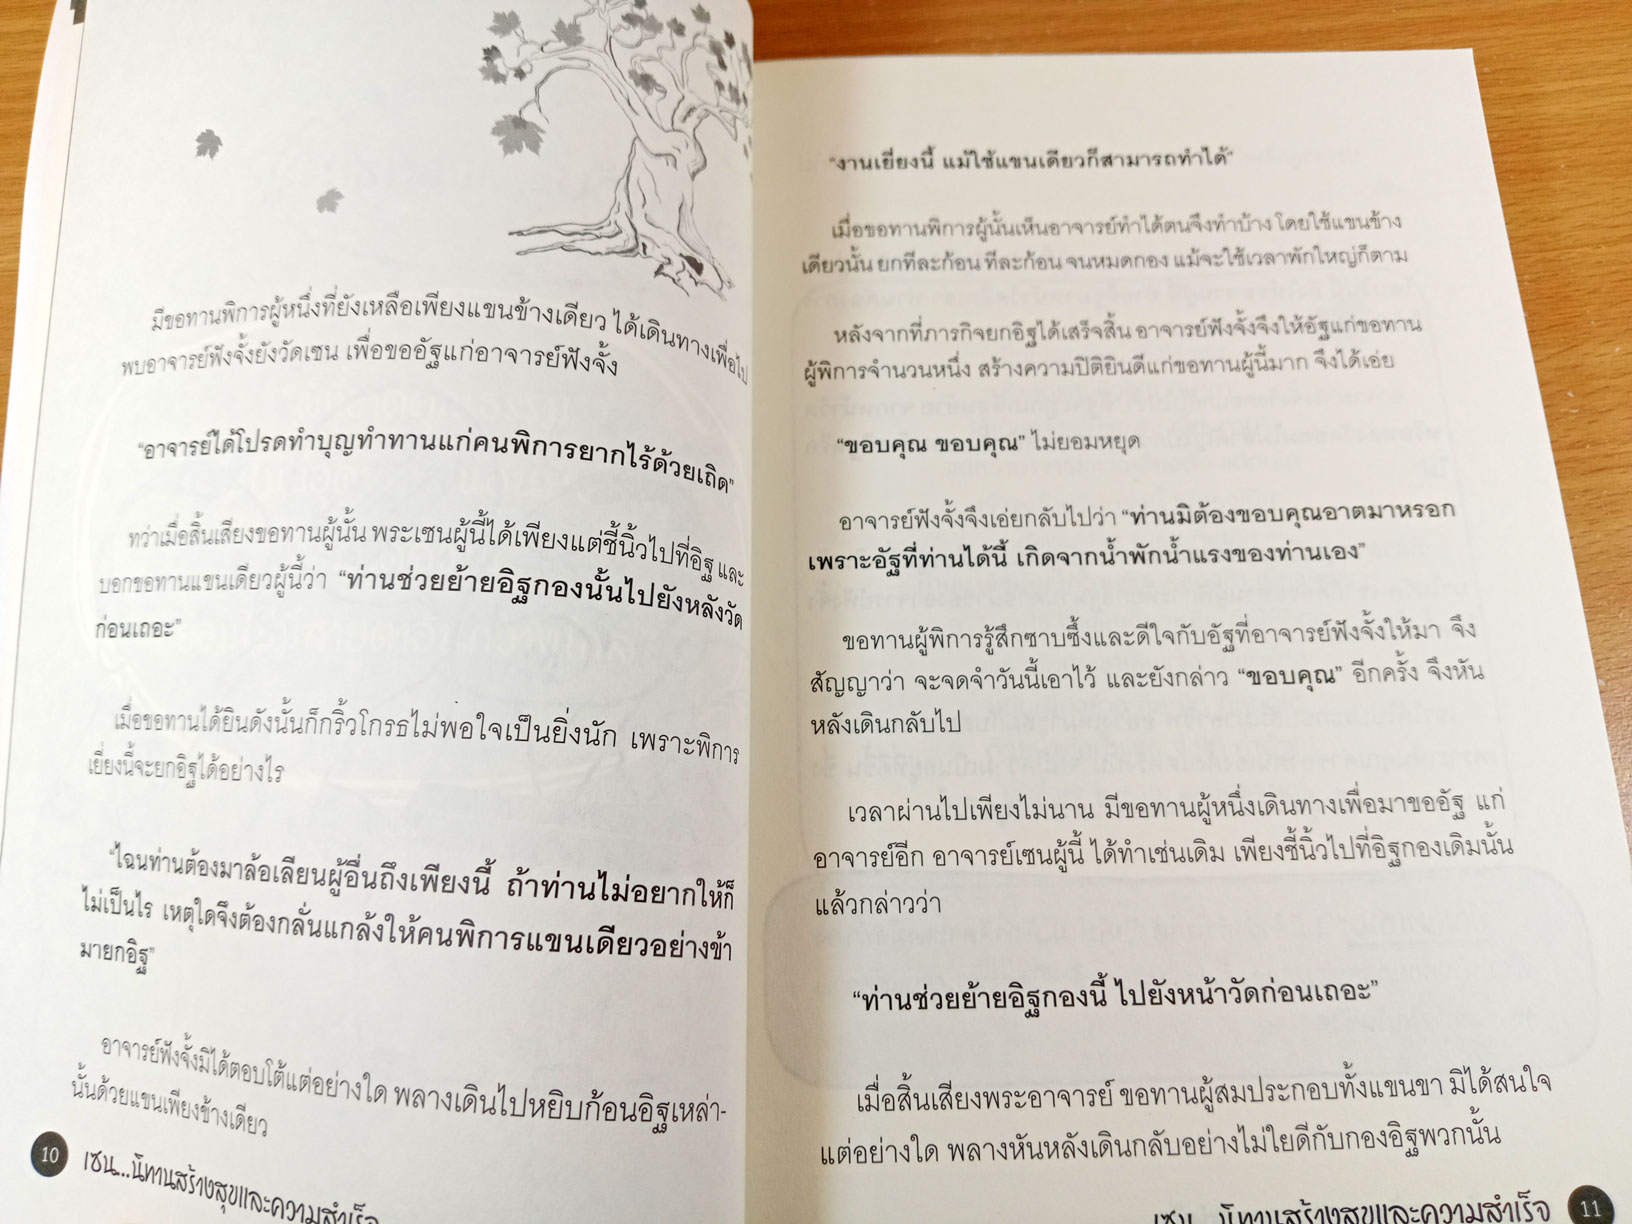 มีขอทานพิการผู้หนึ่งที่ยังเหลือเพียงแขนข้างเดียว ได้เดินทางเพื่อไป
พบอาจารย์ฟังจั้งยังวัดเซน เพื่อขออัฐแก่อาจารย์ฟังจั้ง
“อาจารย์ได้โปรดทำบุญทำทานแก่คนพิการยากไร้ด้วยเถิด”
ทว่าเมื่อสิ้นเสียงขอทานผู้นั้น พระเซนผู้นี้ได้เพียงแต่ชี้นิ้วไปที่อิฐ และ
บอกขอทานแขนเดียวผู้นี้ว่า “ท่านช่วยย้ายอิฐกองนั้นไปยังหลังวัด
ก่อนเถอะ”
เมื่อขอทานได้ยินดังนั้นก็กริ้วโกรธไม่พอใจเป็นยิ่งนัก เพราะพิการ
เยี่ยงนี้จะยกอิฐได้อย่างไร
“ไฉนท่านต้องมาล้อเลียนผู้อื่นถึงเพียงนี้ ถ้าท่านไม่อยากให้ก็
ไม่เป็นไร เหตุใดจึงต้องกลั่นแกล้งให้คนพิการแขนเดียวอย่างข้า
มายกอิฐ”
อาจารย์ฟังจั้งมิได้ตอบโต้แต่อย่างใด พลางเดินไปหยิบก้อนอิฐเหล่า-
นั้นด้วยแขนเพียงข้างเดียว
10 เซน...นิทานสร้างสุขและความสำเร็จ
“งานเยี่ยงนี้ แม้ใช้แขนเดียวก็สามารถทำได้”
เมื่อขอทานพิการผู้นั้นเห็นอาจารย์ทำได้ตนจึงทำบ้าง โดยใช้แขนข้าง
เดียวนั้น ยกทีละก้อน ทีละก้อน จนหมดกอง แม้จะใช้เวลาพักใหญ่ก็ตาม
หลังจากที่ภารกิจยกอิฐได้เสร็จสิ้น อาจารย์ฟังจั้งจึงให้อัฐแก่ขอทาน
ผู้พิการจำนวนหนึ่ง สร้างความปิติยินดีแก่ขอทานผู้นี้มาก จึงได้เอ่ย
“ขอบคุณ ขอบคุณ” ไม่ยอมหยุด
อาจารย์ฟังจั้งจึงเอ่ยกลับไปว่า “ท่านมิต้องขอบคุณอาตมาหรอก
เพราะอัฐที่ท่านได้นี้ เกิดจากน้ำพักน้ำแรงของท่านเอง”
ขอทานผู้พิการรู้สึกซาบซึ้งและดีใจกับอัฐที่อาจารย์ฟังจั้งให้มา จึง
สัญญาว่า จะจดจำวันนี้เอาไว้ และยังกล่าว “ขอบคุณ” อีกครั้ง จึงหัน
หลังเดินกลับไป
เวลาผ่านไปเพียงไม่นาน มีขอทานผู้หนึ่งเดินทางเพื่อมาขออัฐ แก่
อาจารย์อีก อาจารย์เซนผู้นี้ ได้ทำเช่นเดิม เพียงชี้นิ้วไปที่อิฐกองเดิมนั้น
แล้วกล่าวว่า
“ท่านช่วยย้ายอิฐกองนี้ ไปยังหน้าวัดก่อนเถอะ”
เมื่อสิ้นเสียงพระอาจารย์ ขอทานผู้สมประกอบทั้งแขนขา มิได้สนใจ
แต่อย่างใด พลางหันหลังเดินกลับอย่างไม่ใยดีกับกองอิฐพวกนั้น
เซน...นิทานสร้างสุขและความสำเร็จ 11